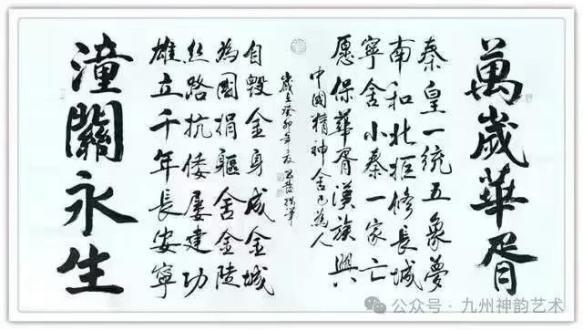 萬歲華胥
秦皇一統五象夢
南和北拒修長城
寧舍小秦一家亡
願保華胥漢族興
中國精神舍己為人
歲在癸卯年夏
自毀金身成金城
為國捐軀舍金陵
絲路抗倭屢建功
雄立千年長安寧
潼關永生
公众号·九州神韵艺术